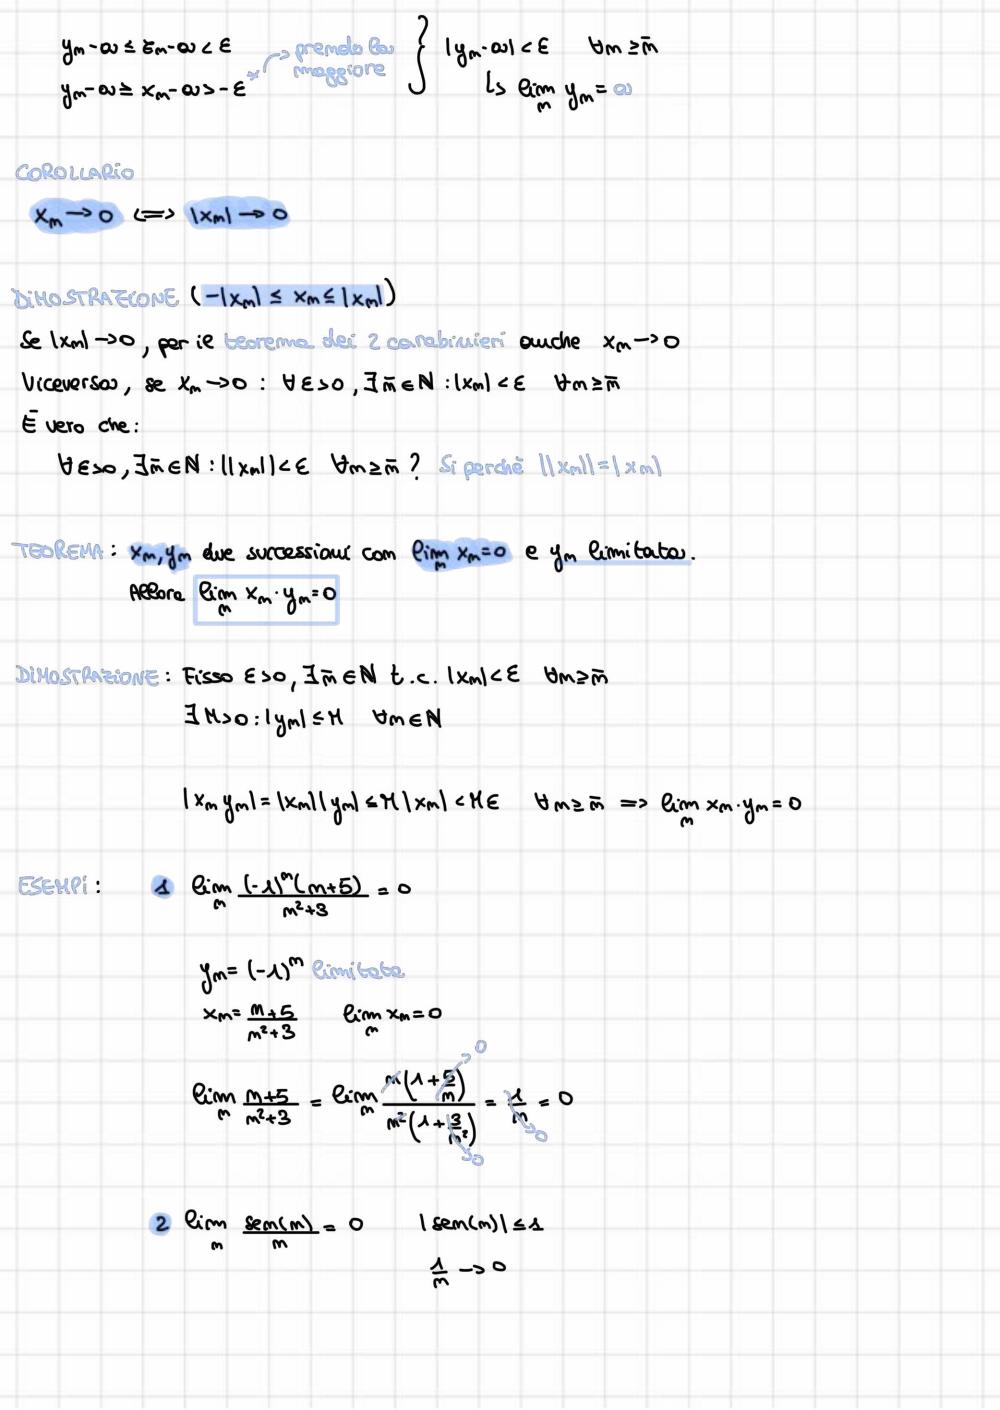 yₙ-a ≤ zₙ-a < ε
yₙ-a ≥ xₙ-a > -ε * → prendo la maggiore } |yₙ-a| < ε ∀n ≥ n̄
↳ lim yₙ = a
n
COROLLARIO
xₙ → 0 <=> |xₙ| → 0
DIMOSTRAZIONE (-|xₙ| ≤ xₙ ≤ |xₙ|)
Se |xₙ| → 0, per il teorema dei 2 carabinieri anche xₙ → 0
Viceversa, se xₙ → 0 : ∀ε>0, ∃n̄∈ℕ : |xₙ| < ε ∀n ≥ n̄
È vero che:
∀ε>0, ∃n̄∈ℕ : ||xₙ|| < ε ∀n ≥ n̄ ? Si perchè ||xₙ|| = |xₙ|
TEOREMA : xₙ, yₙ due successioni con lim xₙ = 0 e yₙ limitata.
n
Allora lim xₙ · yₙ = 0
n
DIMOSTRAZIONE : Fisso ε>0, ∃n̄∈ℕ t.c. |xₙ| < ε ∀n ≥ n̄
∃M>0 : |yₙ| ≤ M ∀n∈ℕ
|xₙ yₙ| = |xₙ||yₙ| ≤ M|xₙ| < Mε ∀n ≥ n̄ => lim xₙ · yₙ = 0
n
ESEMPI : 1 lim (-1)ⁿ(n+5) / n²+3 = 0
n
yₙ = (-1)ⁿ limitata
xₙ = n+5 / n²+3 lim xₙ = 0
n
lim n+5 / n²+3 = lim n(1 + 5/n) → 0 / n²(1 + 3/n²) → 0 = 1/n → 0 = 0
n n
2 lim sen(n) / n = 0 |sen(n)| ≤ 1
n
1/n → 0